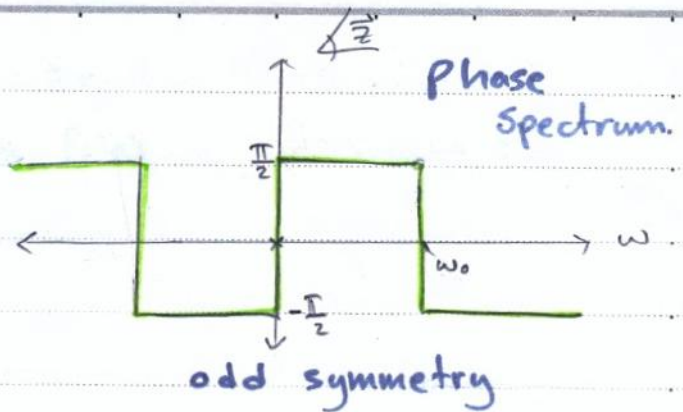 ∡z⃗
phase
spectrum.
π/2
ω
ω₀
-π/2
odd symmetry